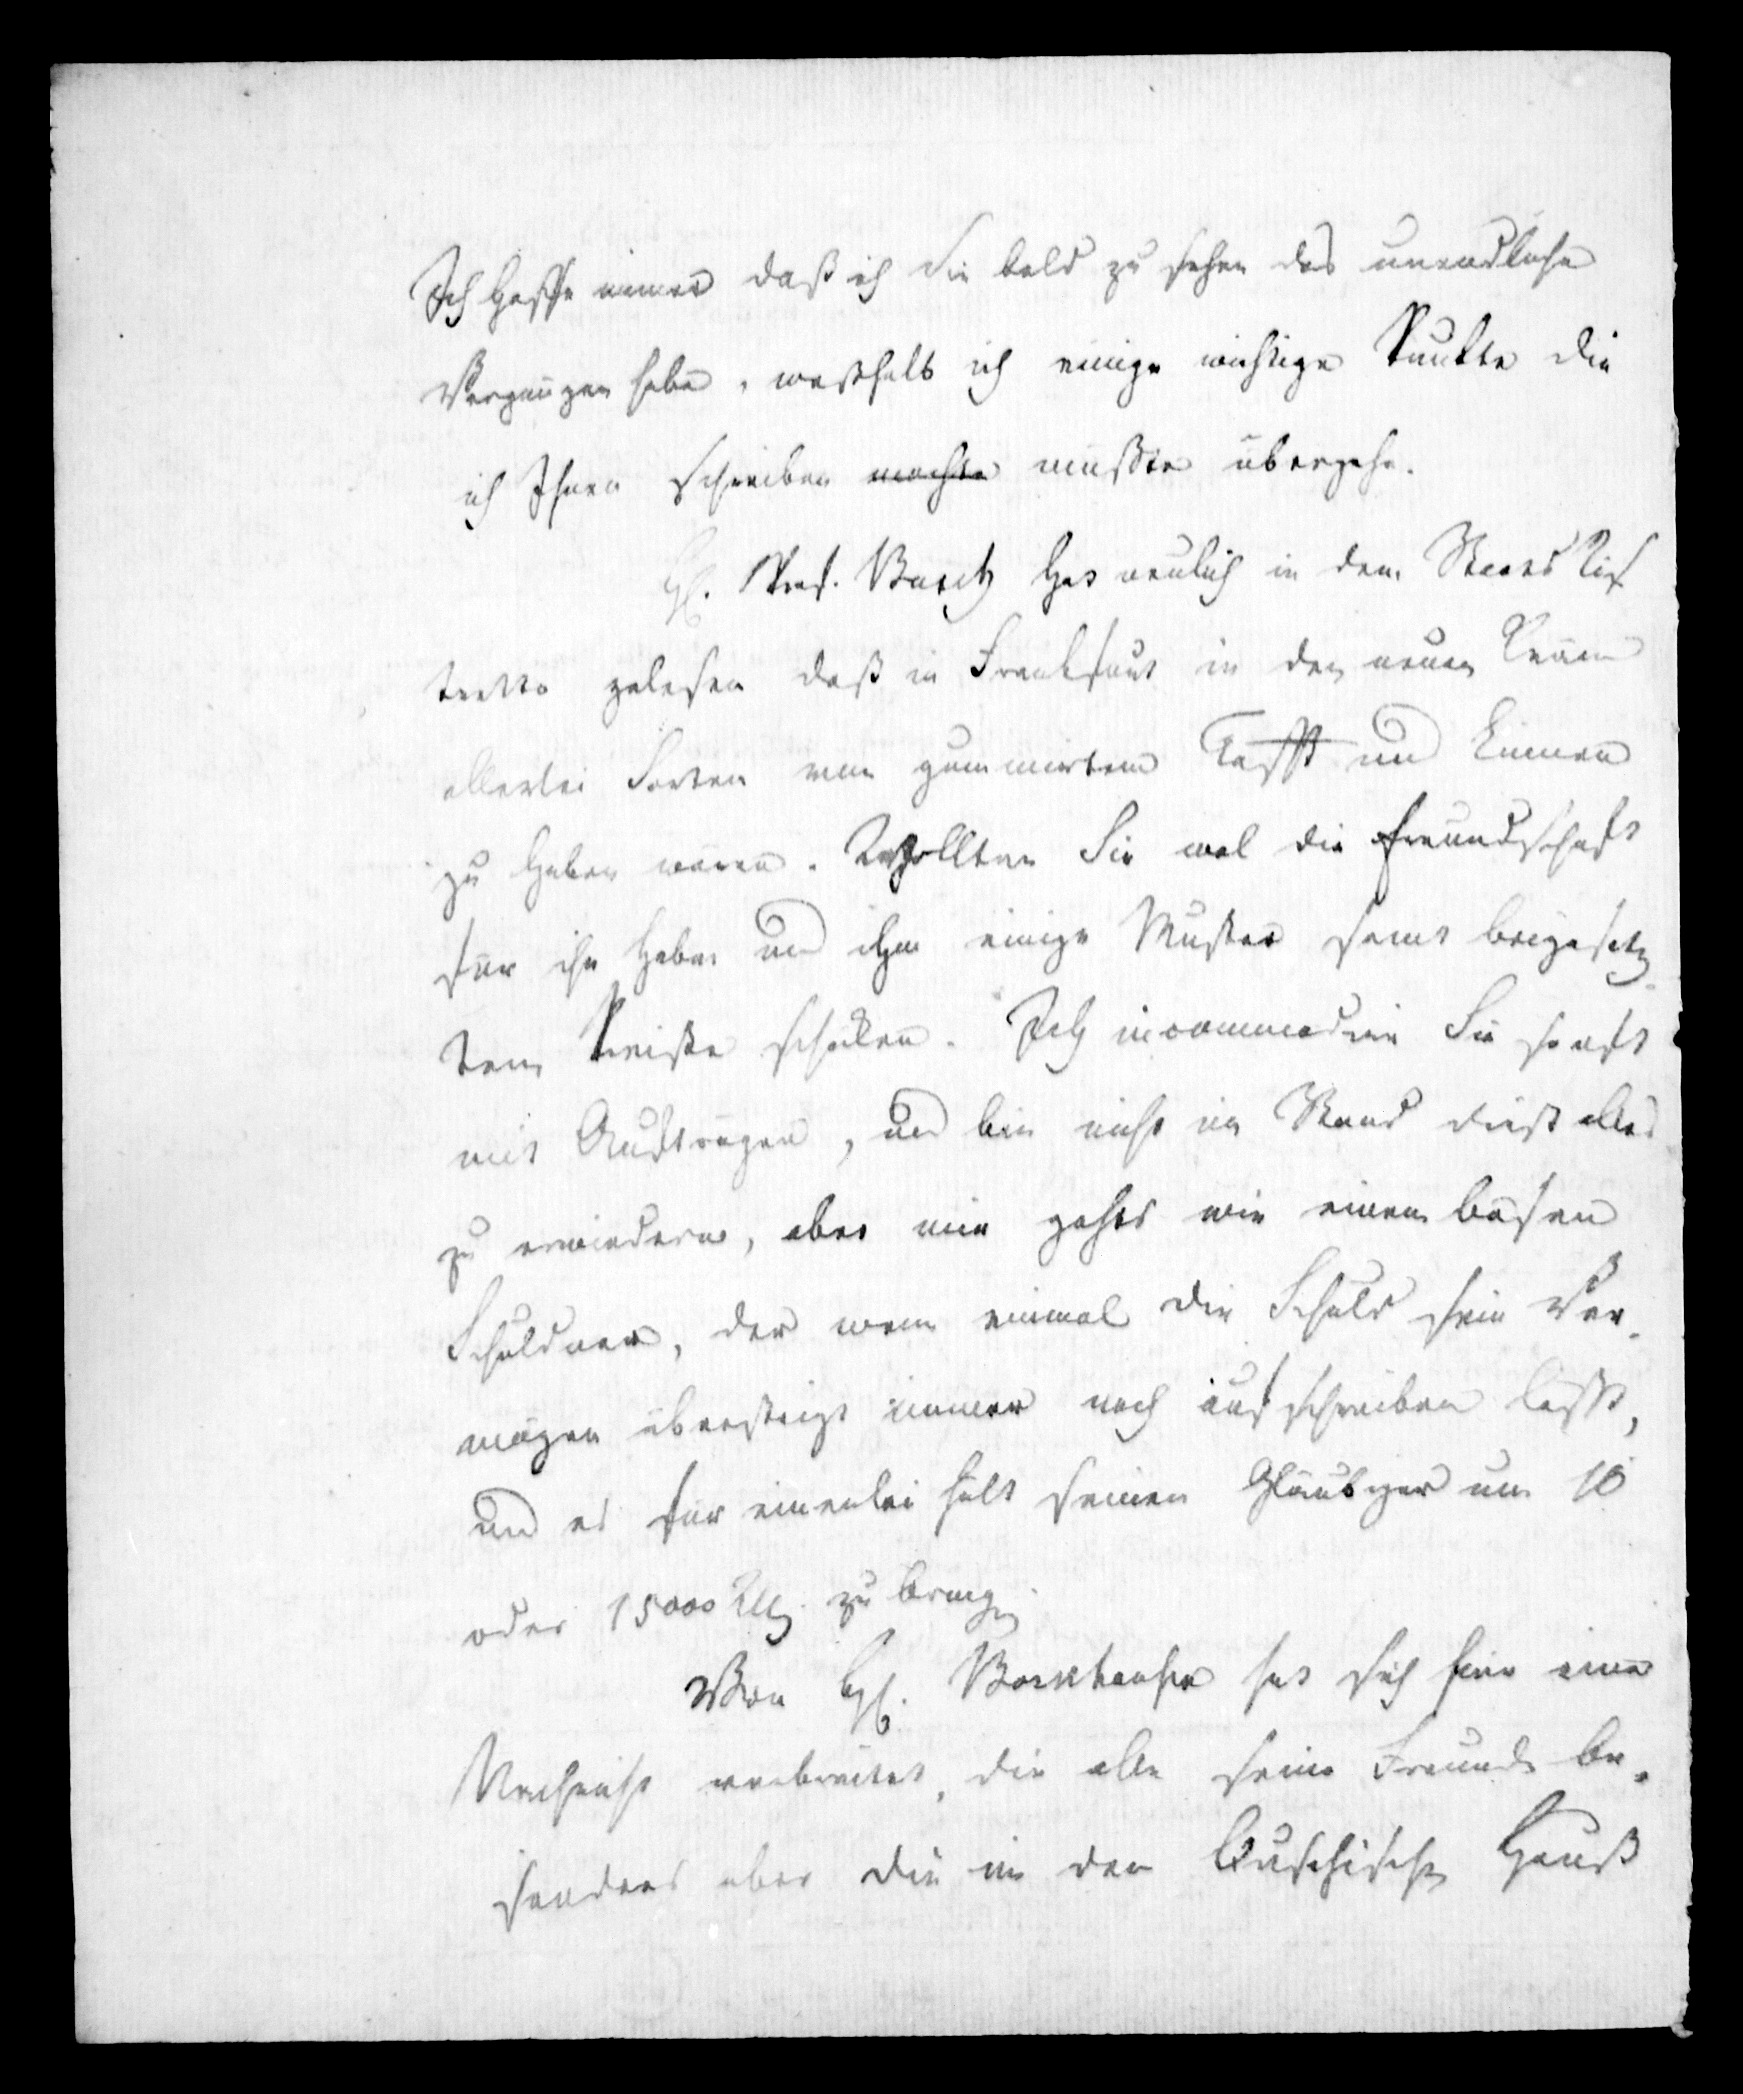 Ich hoffe immer daß ich Sie bald zu sehen das unendliche
Vergnügen habe, weßhalb ich einige wichtige Punkte die
ich Ihnen schreiben mochte müßte übergehe.
H. Prof. Batsch hat neulich in dem Staats Ris
tretto gelesen daß in Frankfurt in der neuen Kräm
allerlei Sorten von gummirtem Tafft und Linnen
zu haben wären. Wollten Sie wol die Freundschaft
für ihn haben und ihm einige Muster samt beigesetz-
tem Preiße schicken. Ich incommodire Sie so oft
mit Aufträgen, und bin nicht im Stand dieß alles
zu erwiedern, aber mir gehts wie einem bösen
Schuldner, der wenn einmal die Schuld sein Ver-
mögen übersteigt immer noch aufschreiben läßt,
und es für einerlei hält seinen Gläubiger um 10
oder 15000 Rthlr. zu bringen.
Von H. Borkhausen hat sich hier eine
Nachricht verbreitet, die alle seine Freunde be-
sonders aber die in dem Buschischen Hauß